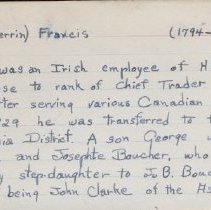 errin) Francis (1794-
was an Irish employee of H
ose to rank of Chief Trader
rter serving various Canadian
829 he was transferred to t
ia District. A son George w
and Josephte Boucher, who
y step-daughter to J. B. Bouc
being John Clarke of the H